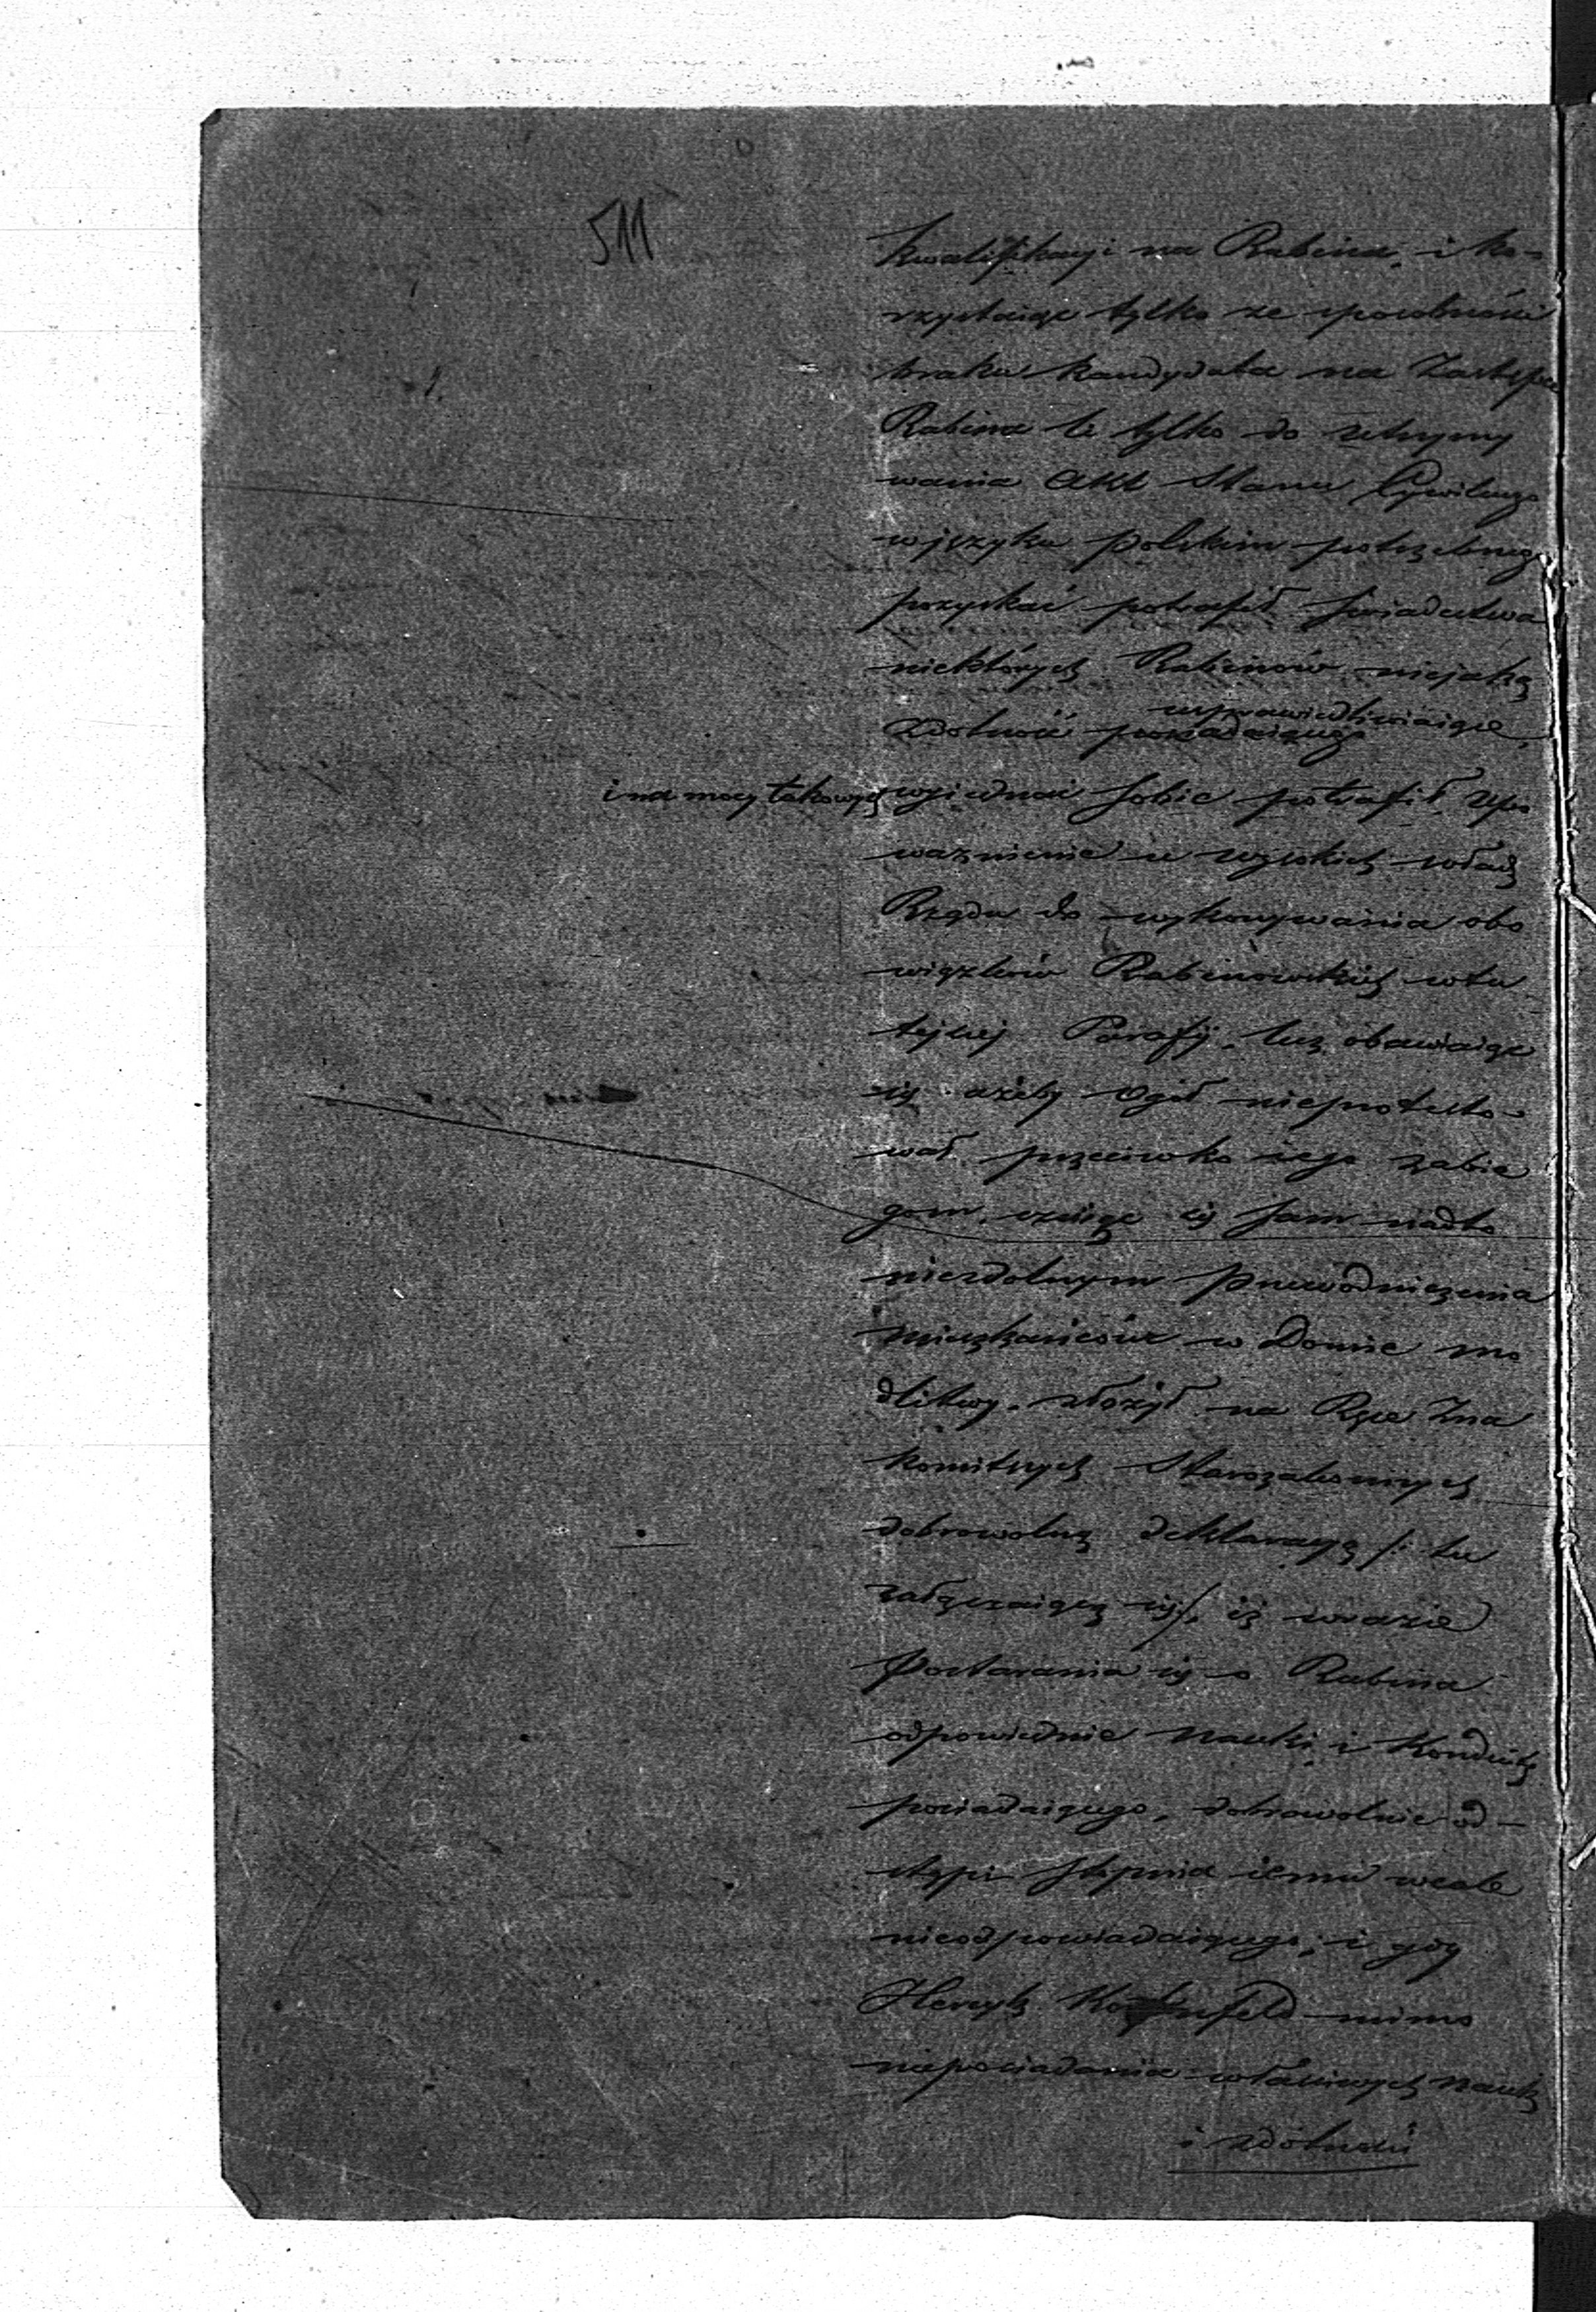 511
kwalifikacyi na Rabina, i ko-
rzystaiąc tylko ze sposobności
braku kandydata na Zastępcę
Rabina le tylko do utrzymy
wania Akt Stanu Cywilnego
w języku polskim potrzebnego
pozyskać potrafił świadectwa
niektórych Rabinów niejaką
usprawiedliwiaiące,
zdolność posiadaiącego
i na mocy takowych wyiednać sobie potrafił upo
ważnienie u wysokich władz
Rządu do wykonywania obo
wiązków Rabinowskich w tu
tejszej Parafij, lecz obawiaiąc
się ażeby Ogół nieprotesto-
wał przeciwko iego zabie
gom, czuiąc się sam nadto
niezdolnym przewodniczenia
mieszkańców w Domie mo
dlitwy, złożył na Ręce Zna
komitszych Starozakonnych
dobrowolną deklaracyą /: tu
załączaiącą się :/, iż w razie
Postarania się o Rabina
odpowiednie nauki i Konduitę
posiadaiącego, dobrowolnie od-
stąpi stopnia iemu wcale
nieodpowiadaiącego; i gdy
Henryk mimo
nieposiadania właściwych nauk
i zdolności